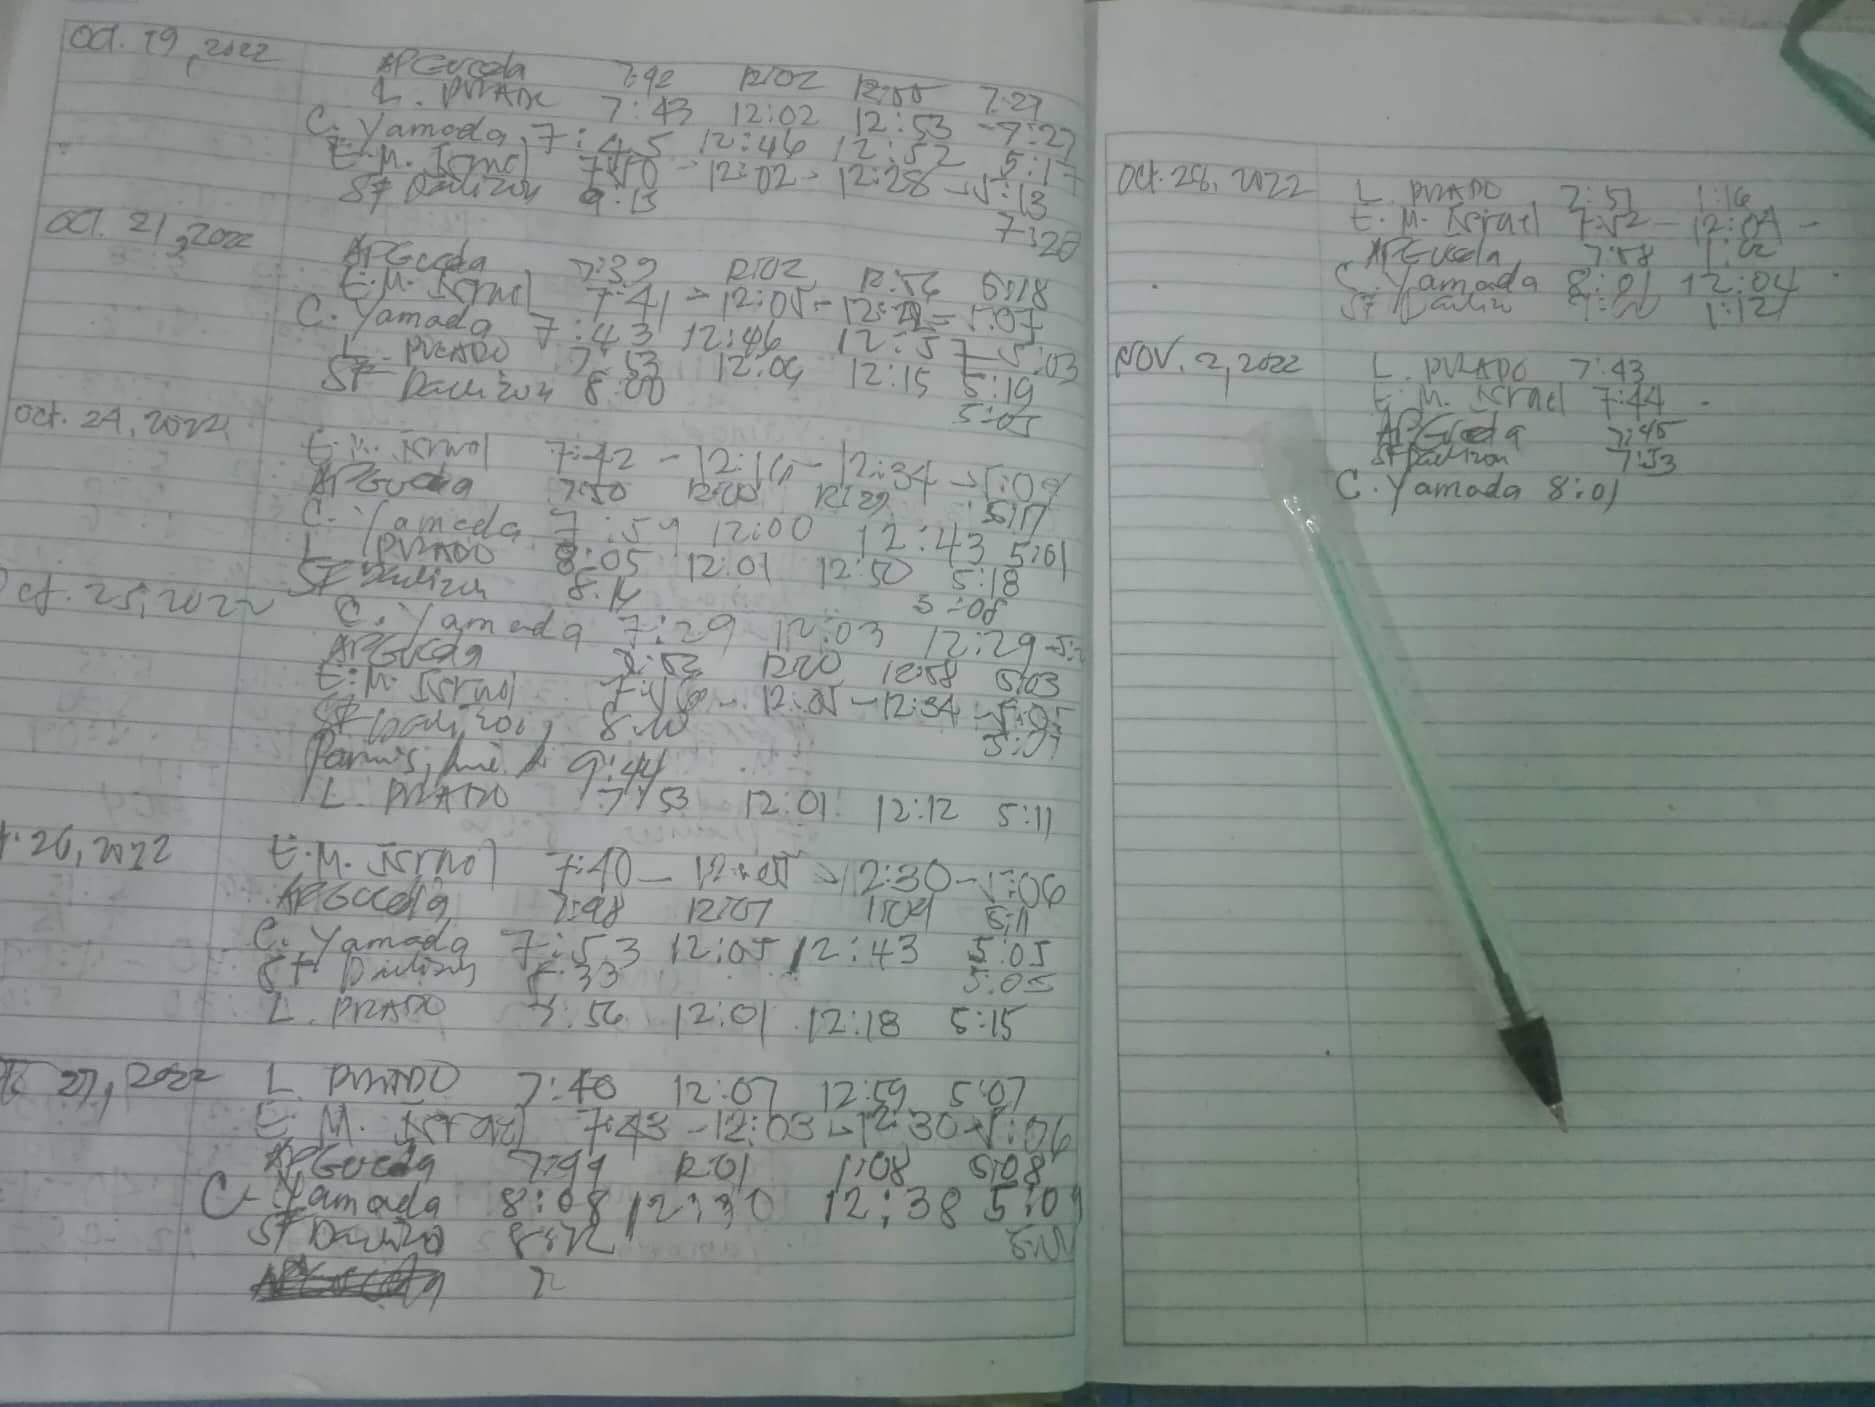 Oct. 19, 2022
APGuceda 7:42 12:02 12:55 7:27
L. PRADO 7:43 12:02 12:53 - 7:27
C. Yamada 7:45 12:46 12:52 5:17
E.M. Israel 7:50 - 12:02 - 12:28 - 5:13
9:15 7:28
Oct. 21, 2022
APGuceda 7:39 12:02 12:56 5:18
E.M. Israel 7:41 - 12:05 - 5:07
C. Yamada 7:43 12:46 12:57 5:03
L. PRADO 7:53 12:04 12:15 5:19
8:00 5:05
Oct. 24, 2022
E.M. Israel 7:42 - 12:16 - 12:34 - 5:09
APGuceda 7:50 12:00 12:29 5:17
C. Yamada 7:59 12:00 12:43 5:01
L. PRADO 8:05 12:01 12:50 5:18
8:14 5:08
Oct. 25, 2022
C. Yamada 7:29 12:03 12:29
APGuceda 7:52 12:00 12:58 5:03
E.M. Israel 7:46 - 12:05 - 12:34 - 5:05
8:10 5:07
9:44
L. PRADO 7:53 12:01 12:12 5:11
26, 2022
E.M. Israel 7:40 - 12:05 - 12:30 - 5:06
APGuceda 7:48 12:01 1:04 5:11
C. Yamada 7:53 12:05 12:43 5:05
8:33 5:05
L. PRADO 7:56 12:01 12:18 5:15
27, 2022
L. PRADO 7:40 12:07 12:59 5:07
E.M. Israel 7:43 - 12:03 - 12:30 - 5:06
APGuceda 7:44 12:01 1:08 5:08
C. Yamada 8:08 12:30 12:38 5:09
Oct. 28, 2022
L. PRADO 7:51 1:16
E.M. Israel 7:52 - 12:04 -
APGuceda 7:58
C. Yamada 8:01 12:04
1:12
NOV. 2, 2022
L. PRADO 7:43
E.M. Israel 7:44 -
APGuceda 7:45
7:53
C. Yamada 8:01